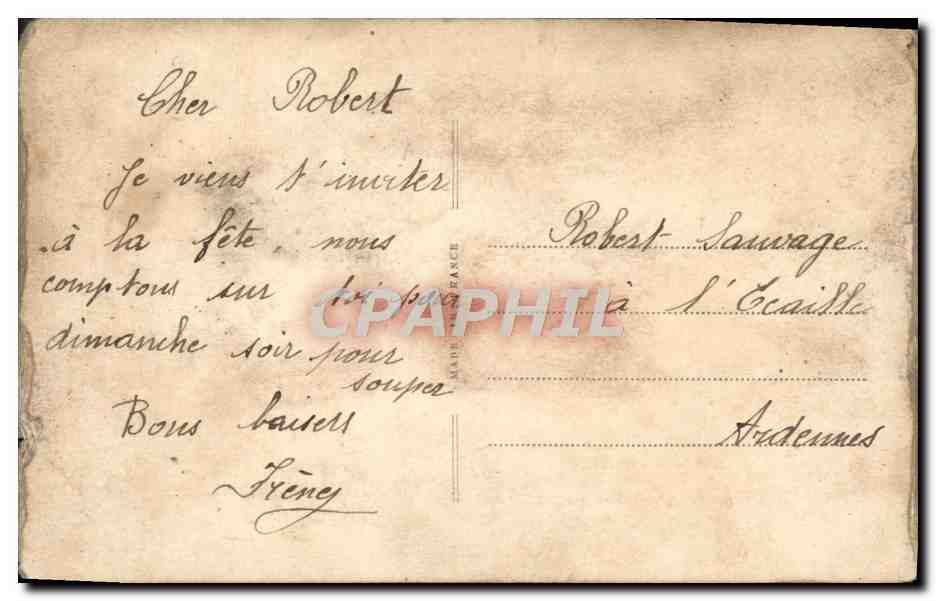 Cher Robert
Je viens t'inviter
à la fête, nous
comptons sur toi pour
dimanche soir pour
souper
Bons baisers
Irène
MADE IN FRANCE
Robert Sauvage
à l'Ecaille
Ardennes
CPAPHIL